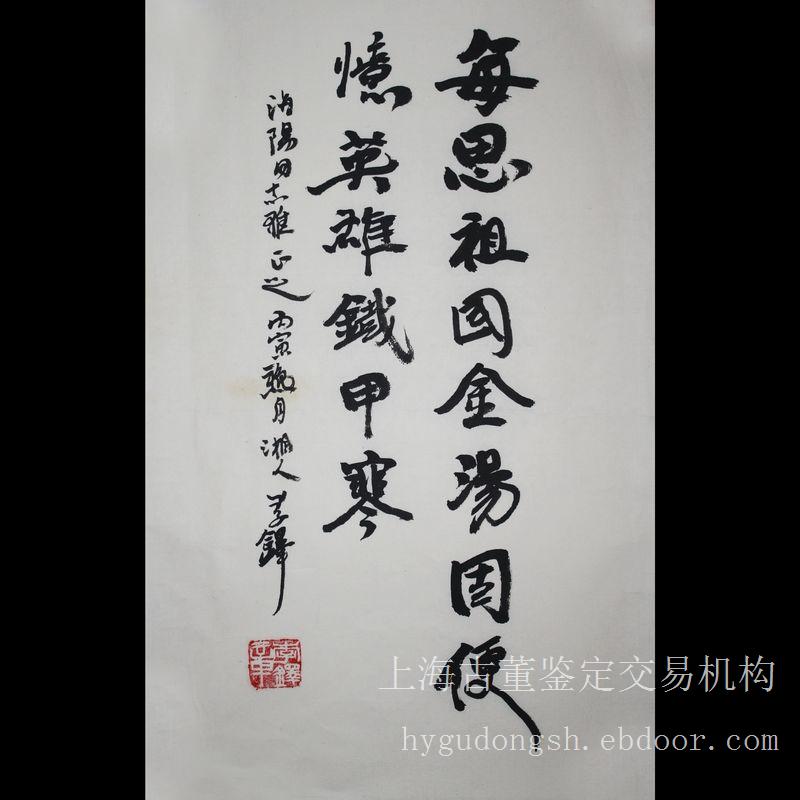 每思祖国金湯固便
憶英雄鐵甲寒
消陽同志雅正之 丙寅熱月 湘人 李鐸
李鐸
上海古董鉴定交易机构
hygudongsh.ebdoor.com